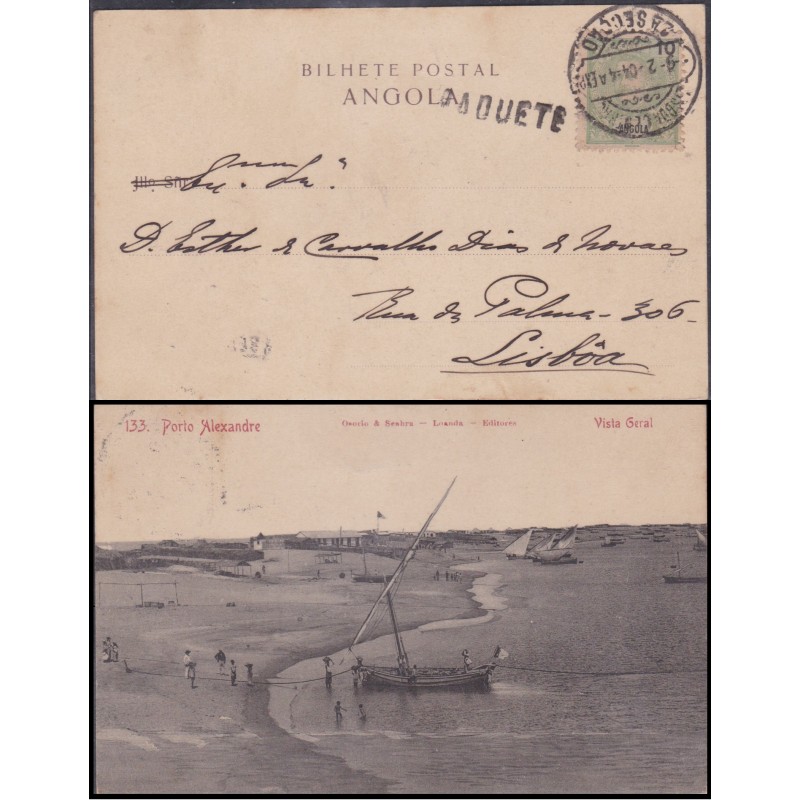 BILHETE POSTAL
ANGOLA
PAQUETE
2ª SECÇÃO
4-2-04
ANGOLA
Illo. Snr.
Exma. Sra.
D. Esther de Carvalho Dias de Novaes
Rua da Palma - 306 -
Lisbôa
133. Porto Alexandre
Osorio & Seabra — Loanda — Editores
Vista Geral